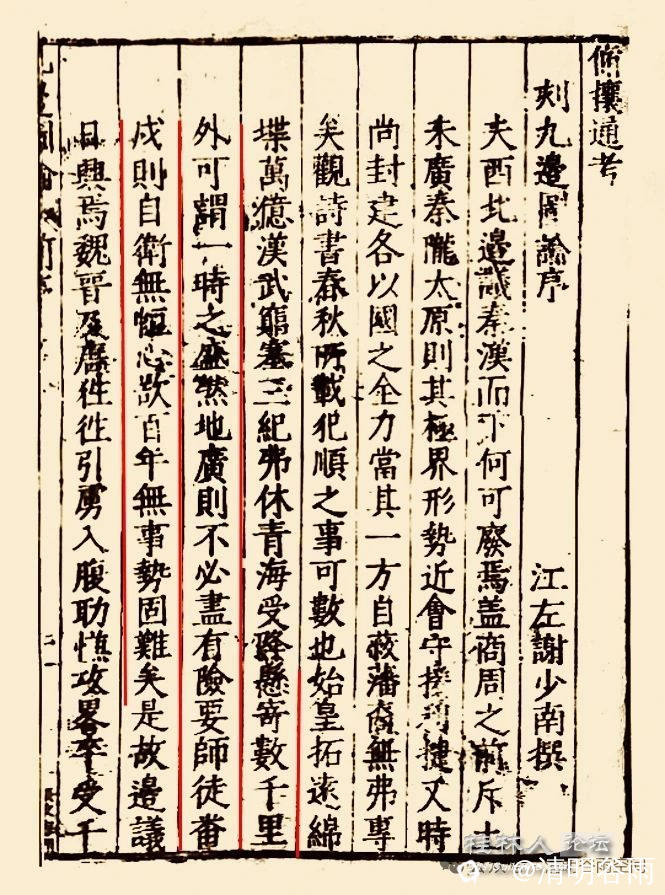 脩攘通考
刻九邊圖論序
江左謝少南撰
夫西北邊議秦漢而下何可廢焉盖商周之前斥土
未廣秦隴太原則其極界形勢近會守捷又時
尚封建各以國之全力當其一方自救藩裔無弗專
矣觀詩書春秋所載犯順之事可數也始皇拓遠綿
堞萬億漢武臨塞三紀弗休青海受降懸寄數千里
外可謂一時之盛然地廣則不必盡有險要師徒畨
戍則自衛無恒心欲百年無事勢固難矣是故邊議
日興焉魏晉及唐徃徃引虜入腹助憔攻畧卒受干
桂林人论坛
@清明谷雨